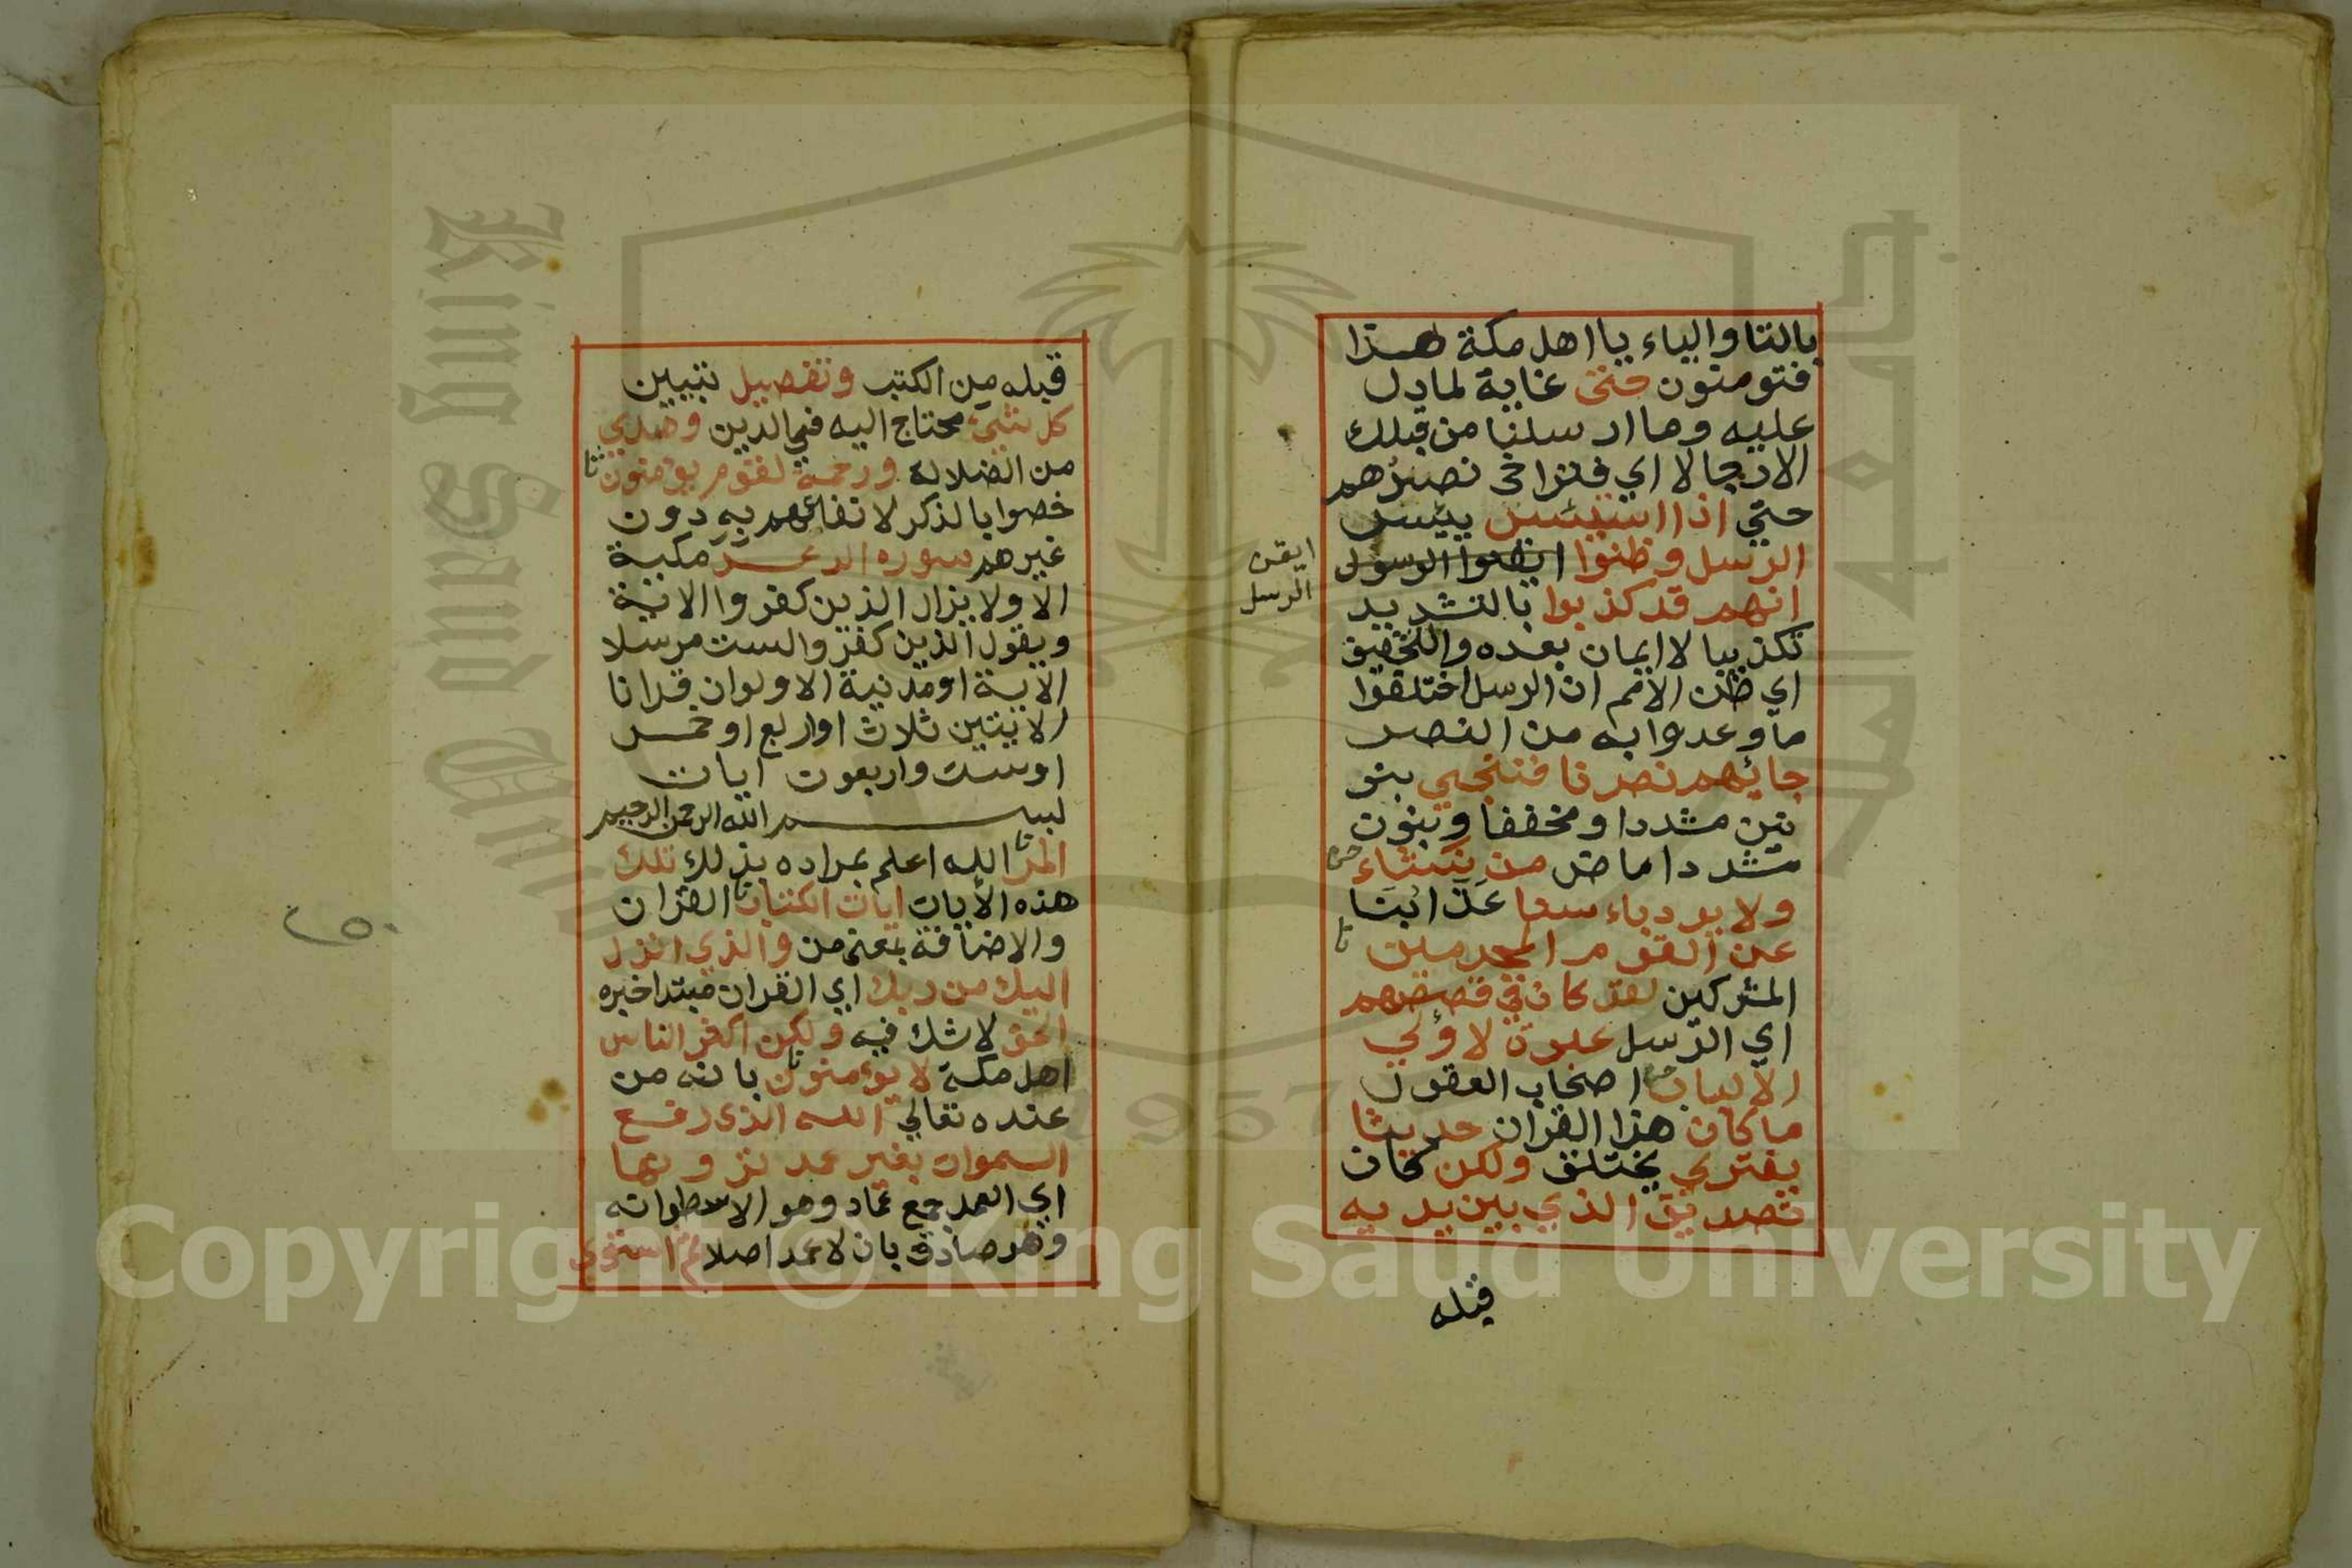 بالتا والياء يا اهل مكة هذا
فتومنون حتى غاية لما دل
عليه وما ارسلنا من قبلك
الا رجالا اي فتراخى نصرهم
حتي اذا استيئس ييئس
الرسل وظنوا ايقنوا الرسول
ايقن
الرسل
انهم قد كذبوا بالتشديد
تكذيبا لا ايمان بعده والتخفيف
اي ظن الامم ان الرسل اختلفوا
ما وعدوا به من النصر
جائهم نصرنا فننجي بنو
نين مشددا ومخففا وبنون
مشددا ماض من نشاء
ولا يرد باء سنا عذابنا
عن القوم المجرمين
المشركين لقد كان في قصصهم
اي الرسل عبرة لاولي
الالباب اصحاب العقول
ما كان هذا القران حديثا
يفتري يختلق ولكن كان
تصديق الذي بين يديه
قبله
قبله من الكتب وتفصيل تبيين
كل شيء محتاج اليه في الدين وهدي
من الضلالة ورحمة لقوم يومنون
خصوا بالذكر لانتفاعهم به دون
غيرهم سورة الرعد مكية
الا ولا يزال الذين كفروا الاية
ويقول الذين كفروا لست مرسلا
الاية او مدنية الا ولو ان قرانا
الايتين ثلاث او اربع او خمس
او ست واربعون ايات
بسم الله الرحمن الرحيم
المر الله اعلم بمراده بذلك تلك
هذه الأيات ايات الكتاب القران
والاضافة بمعنى من والذي انزل
اليك من ربك اي القران مبتدا خبره
الحق لا شك فيه ولكن اكثر الناس
اهل مكة لا يؤمنون بانه من
عنده تعالي الله الذي رفع
السموات بغير عمد ترونها
اي العمد جمع عماد وهو الاسطوانه
وهو صادق بان لا عمد اصلا ثم استوي
Copyright © King Saud University
King Saud University
جامعة الملك
1957